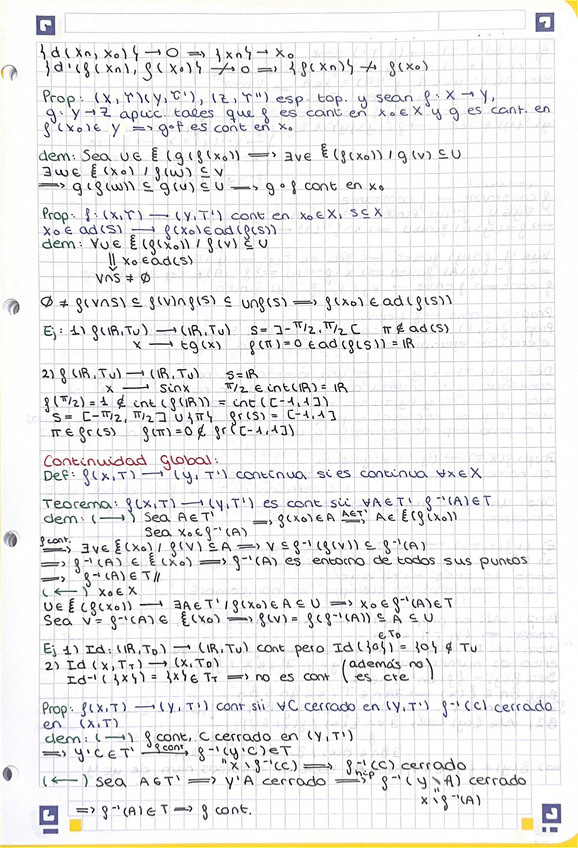 {d(xn, x0)} → 0 ⟹ {xn} → x0
{d'(f(xn), f(x0)} ↛ 0 ⟹ {f(xn)} ↛ f(x0)
Prop: (X, T)(Y, T'), (Z, T'') esp. top. y sean f: X → Y,
g: Y → Z aplic. tales que f es cont en x0 ∈ X y g es cont. en
f(x0) ∈ Y ⟹ g∘f es cont en x0
dem: Sea U ∈ ξ(g(f(x0)) ⟹ ∃V∈ ξ(f(x0)) / g(V) ⊆ U
∃W ∈ ξ(x0) / f(W) ⊆ V
⟹ g(f(W)) ⊆ g(V) ⊆ U ⟹ g∘f cont en x0
Prop: f: (X, T) → (Y, T') cont en x0 ∈ X, S ⊆ X
x0 ∈ ad(S) → f(x0) ∈ ad(f(S))
dem: ∀U ∈ ξ(f(x0)) / f(V) ⊆ U
⇓ x0 ∈ ad(S)
V∩S ≠ ∅
∅ ≠ f(V∩S) ⊆ f(V)∩f(S) ⊆ U∩f(S) ⟹ f(x0) ∈ ad(f(S))
Ej: 1) f(IR, Tu) → (IR, Tu) S = ]-π/2, π/2[ π ∉ ad(S)
x → tg(x) f(π) = 0 ∈ ad(f(S)) = IR
2) f (IR, Tu) → (IR, Tu) S = IR
x → sinx π/2 ∈ int(IR) = IR
f(π/2) = 1 ∉ int(f(IR)) = int([-1,1])
S = [-π/2, π/2] ∪ {π} fr(S) = [-1,1]
π ∈ fr(S) f(π) = 0 ∉ fr([-1,1])
Continuidad Global:
Def: f(X,T) → (Y, T') continua si es continua ∀x∈X
Teorema: f(X,T) → (Y,T') es cont sii ∀A∈T' f⁻¹(A)∈T
dem: (→) Sea A∈T' ⟹ f(x0)∈A A∈T' ⟹ A∈ ξ(f(x0))
Sea x0∈f⁻¹(A)
f cont. ⟹ ∃V∈ ξ(x0) / f(V) ⊆ A ⟹ V ⊆ f⁻¹(f(V)) ⊆ f⁻¹(A)
⟹ f⁻¹(A) ∈ ξ(x0) ⟹ f⁻¹(A) es entorno de todos sus puntos
⟹ f⁻¹(A)∈T //
(←) x0∈X
U∈ ξ(f(x0)) → ∃A∈T' / f(x0)∈A ⊆ U ⟹ x0∈f⁻¹(A)∈T
Sea V = f⁻¹(A) ∈ ξ(x0) ⟹ f(V) = f(f⁻¹(A)) ⊆ A ⊆ U
Ej 1) Id: (IR, TD) → (IR, Tu) cont pero Id({0}) = {0} ∉ Tu
∈ TD
2) Id (X, TT) → (X, TD) (además no
Id⁻¹({x}) = {x} ∈ TT ⟹ no es cont es cte)
Prop: f(X,T) → (Y, T') cont sii ∀C cerrado en (Y,T') f⁻¹(C) cerrado
en (X,T)
dem: (→) f cont, C cerrado en (Y, T')
⟹ Y\C ∈ T' f cont ⟹ f⁻¹(Y\C) ∈ T
" X \ f⁻¹(C) ⟹ f⁻¹(C) cerrado
(←) Sea A∈T' ⟹ Y\A cerrado hip ⟹ f⁻¹(Y \ A) cerrado
" X \ f⁻¹(A)
⟹ f⁻¹(A) ∈ T ⟹ f cont.